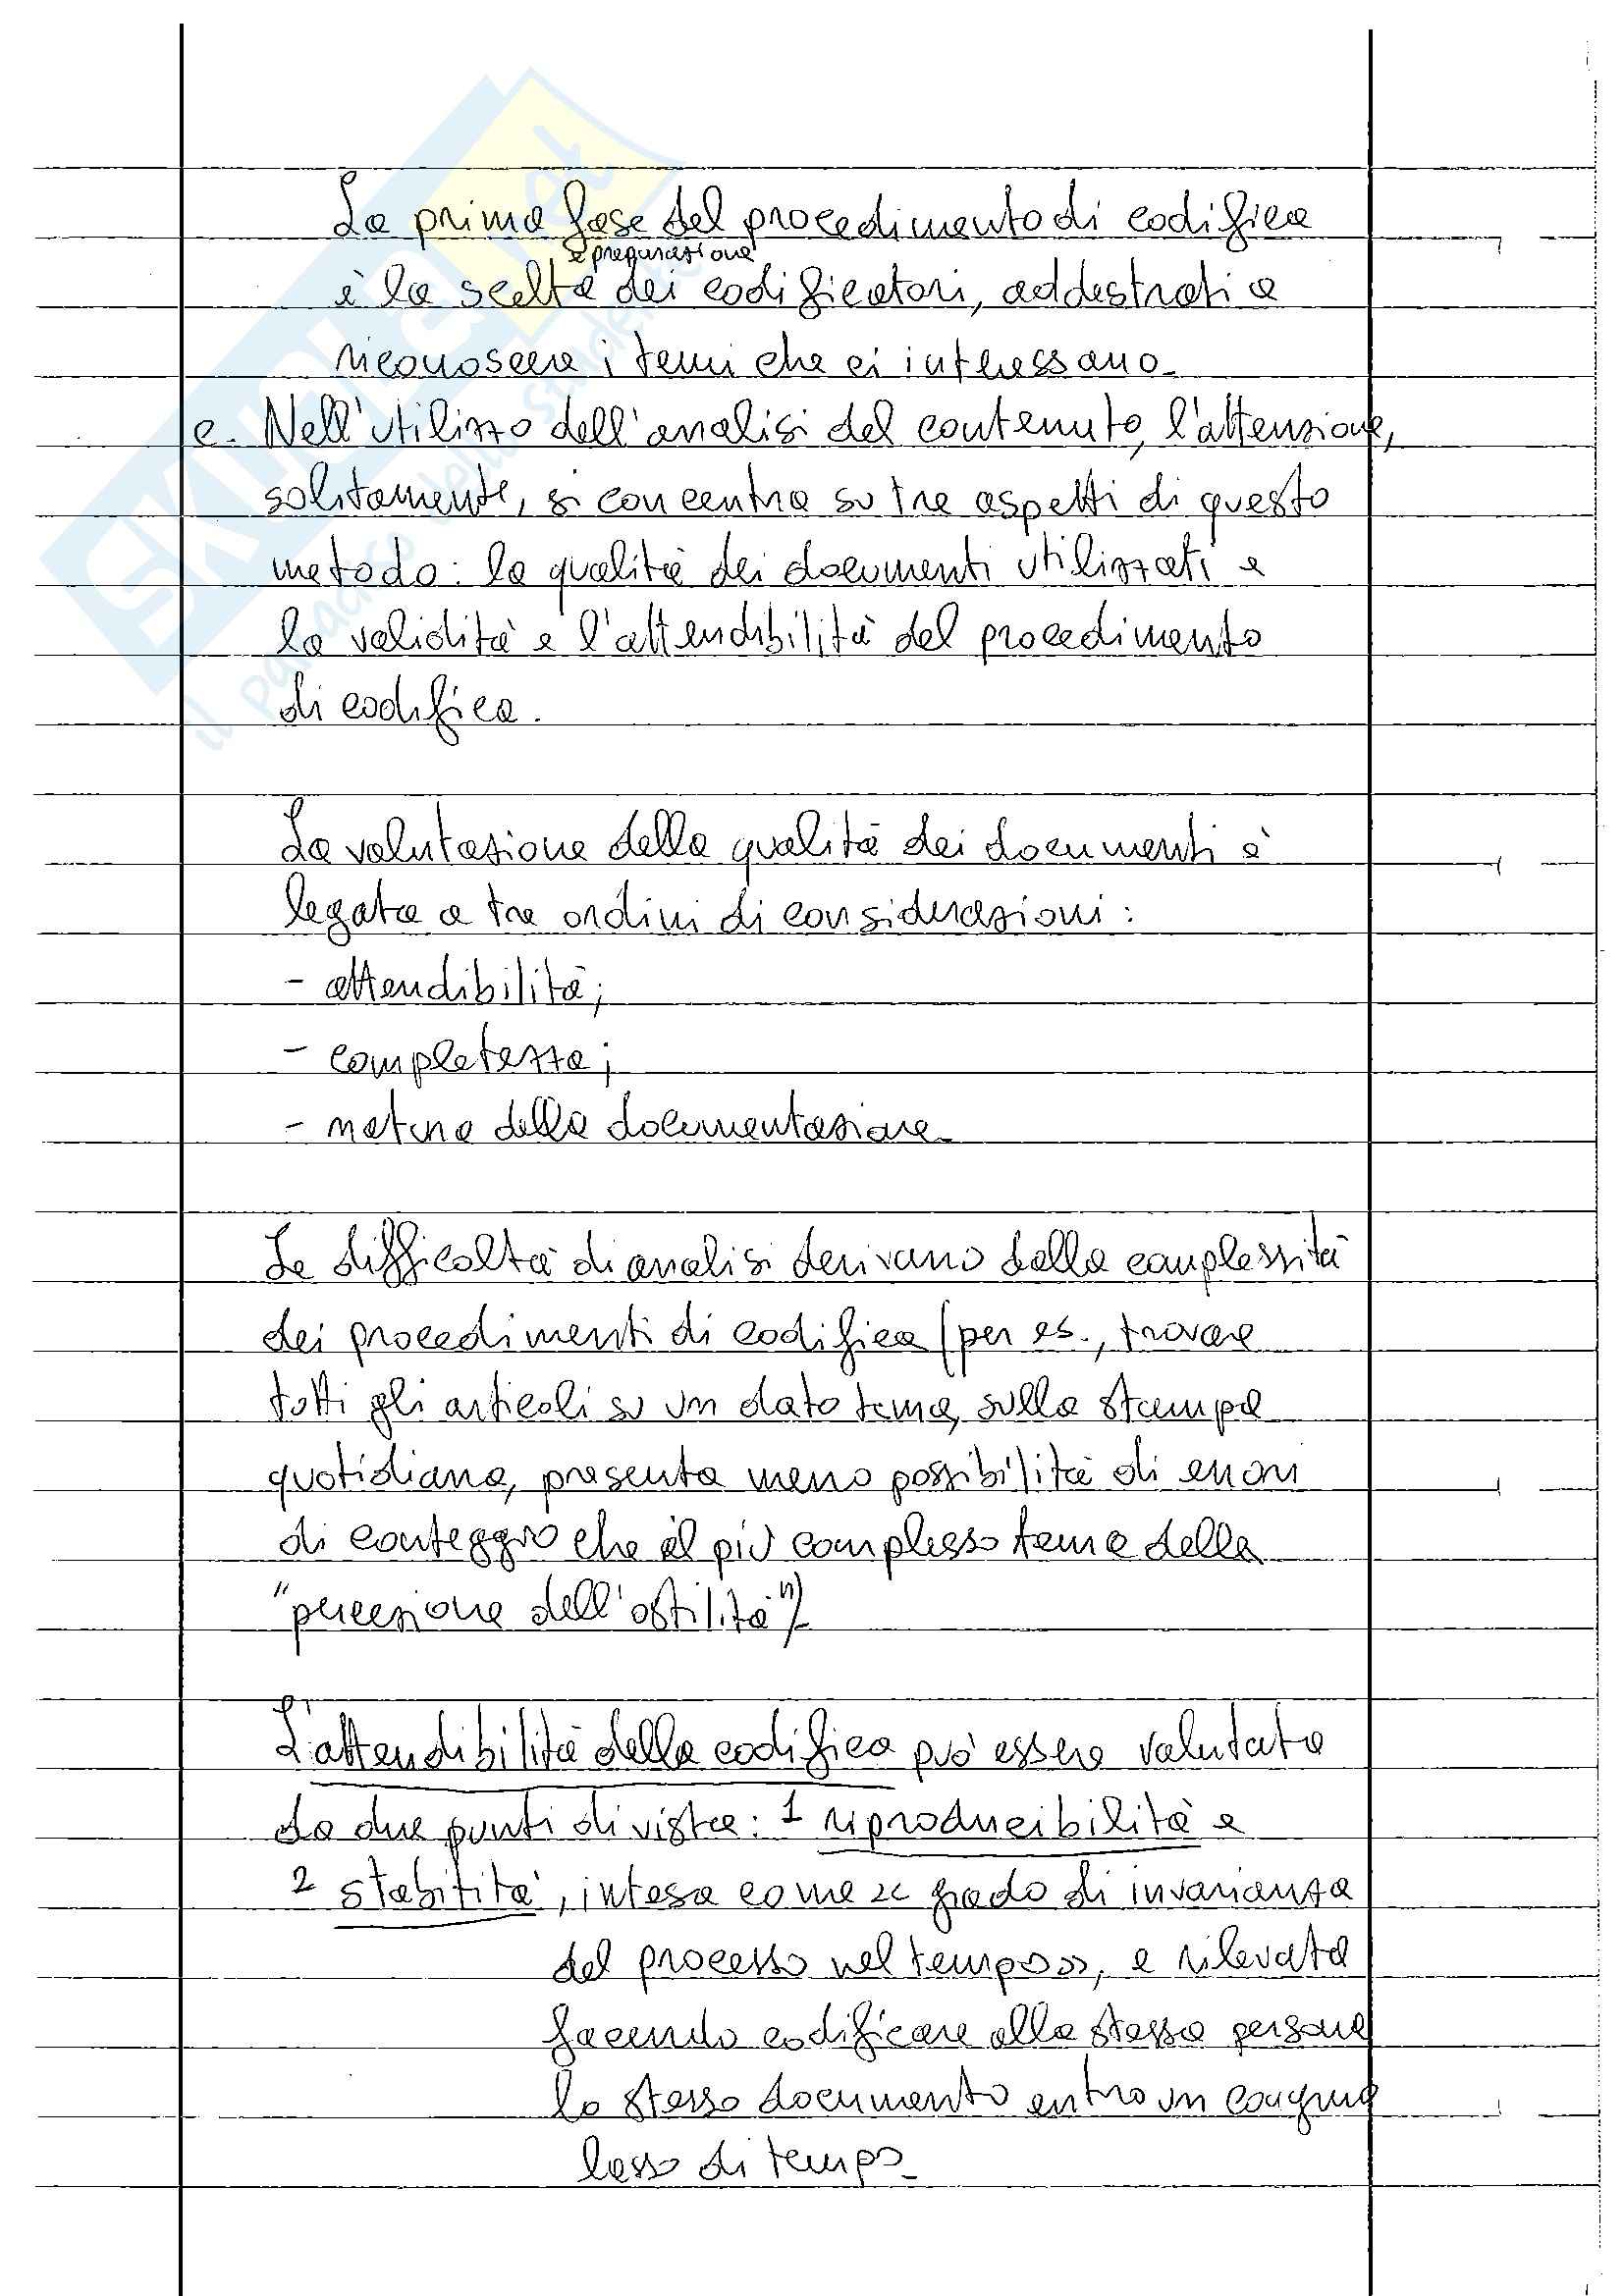 La prima fase del procedimento di codifica
e preparazione
è la scelta dei codificatori, addestrati a
riconoscere i temi che ci interessano.
c. Nell'utilizzo dell'analisi del contenuto, l'attenzione,
solitamente, si concentra su tre aspetti di questo
metodo: la qualità dei documenti utilizzati e
la validità e l'attendibilità del procedimento
di codifica.
La valutazione della qualità dei documenti è
legata a tre ordini di considerazioni:
- attendibilità;
- completezza;
- natura della documentazione.
Le difficoltà di analisi derivano dalla complessità
dei procedimenti di codifica (per es., trovare
tutti gli articoli su un dato tema, sulla stampa
quotidiana, presenta meno possibilità di errori
di conteggio che il più complesso tema della
"percezione dell'ostilità").
L'attendibilità della codifica può essere valutata
da due punti di vista: 1 riproducibilità e
2 stabilità, intesa come << grado di invarianza
del processo nel tempo >>, e rilevata
facendo codificare alla stessa persona
lo stesso documento entro un congruo
lasso di tempo.
SKUOLA.net
il paradiso dello studente